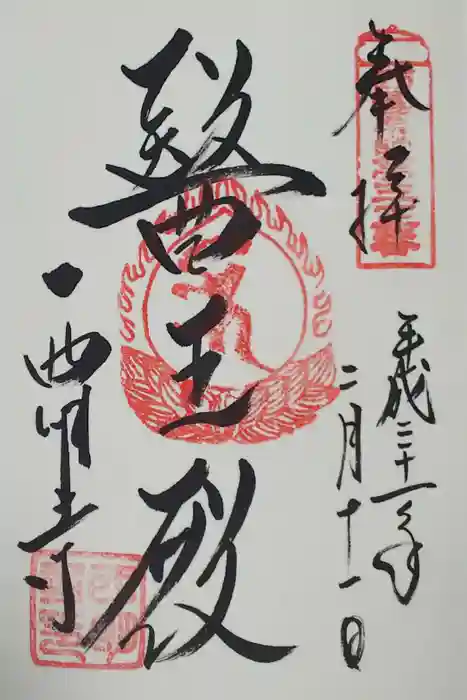 奉拝
平成三十一年
二月十一日
醫王殿
西明寺